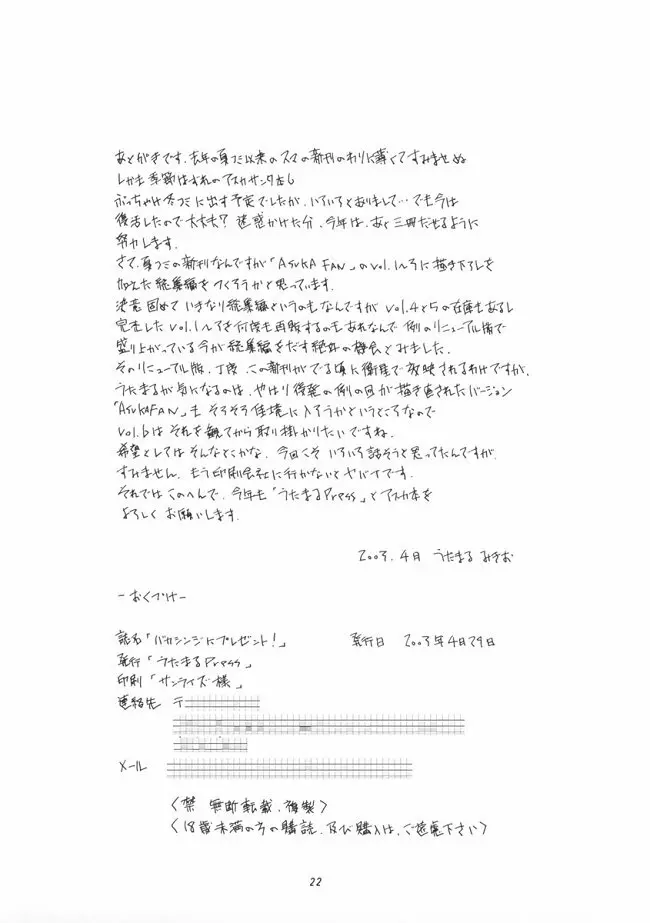 あとがきです。去年の夏コミ以来のスマの新刊のわりに薄くてすみませぬ
しかも季節はずれのアスカサンタ本し
ぶっちゃけ冬コミに出す予定でしたが、いろいろとありまして…でも今は
復活したので大丈夫? 迷惑かけた分、今年は、あと三冊だせるように
努力します。
さて、夏コミの新刊なんですが「ASUKA FAN」のvol.1〜3に描き下ろしを
加えた総集編をつくろうかと思っています。
決意固めていきなり総集編というのもなんですがvol.4と5の在庫もあるし
完売したvol.1〜3を何度も再販するのもあれなんで例のリニューアル版で
盛り上がっている今が総集編をだす絶好の機会とみました。
そのリニューアル版、丁度、この新刊がでる頃に衛星で放映されるわけですが、
うたまるが気になるのは、やはり後発の例の回が描き直されたバージョン
「ASUKAFAN」もそろそろ佳境に入ろうかというところなので
vol.6はそれを観てから取り掛かりたいですね。
希望としてはそんなとこかな、今回こそいろいろ話そうと思ってたんですが、
すみません、もう印刷会社に行かないとヤバイです。
それではこのへんで、今年も「うたまるPress」とアスカ本を
よろしくお願いします。
2003.4月 うたまる みきお
－おくづけ－
誌名「バカシンジにプレゼント!」 発行日 2003年4月29日
発行「うたまるPress」
印刷「サンライズ様」
連絡先 〒
メール
〈禁 無断転載、複製〉
〈18歳未満の方の購読、及び購入は、ご遠慮下さい〉
22